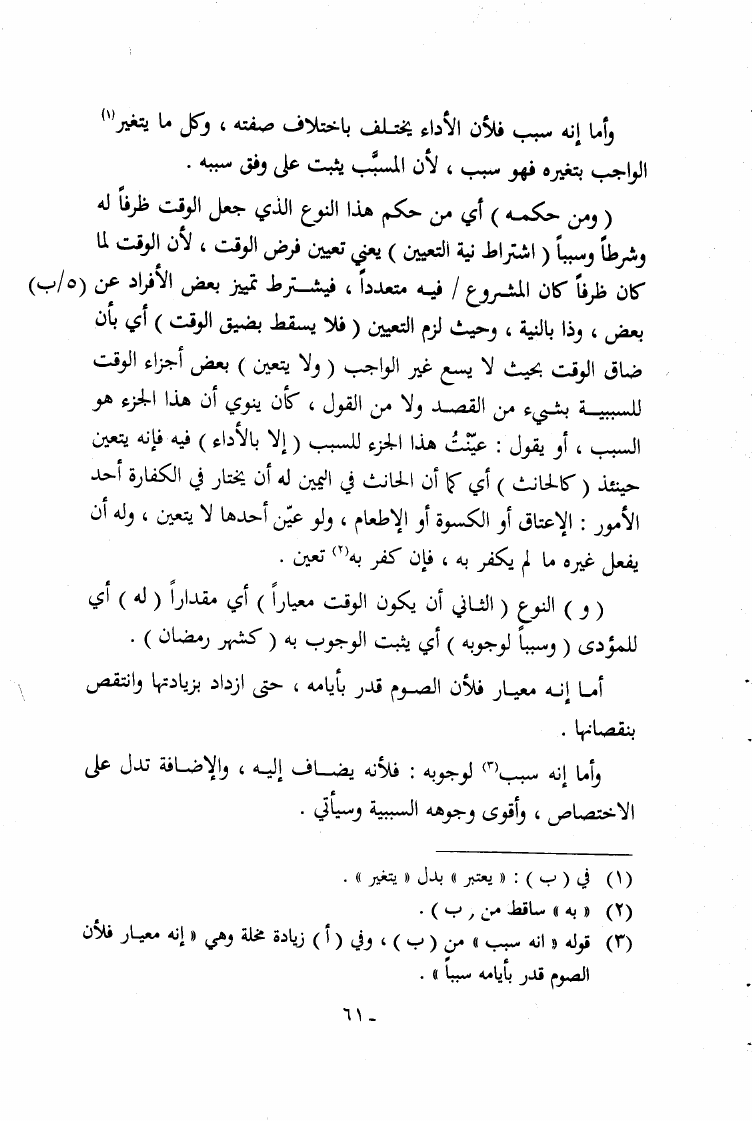 وأما إنه سبب فلأن الأداء يختلف باختلاف صفته ، وكل ما يتغير(١)
الواجب بتغيره فهو سبب ، لأن المسبَّب يثبت على وفق سببه .
( ومن حكمه ) أي من حكم هذا النوع الذي جعل الوقت ظرفاً له
وشرطاً وسبباً ( اشتراط نية التعيين ) يعني تعيين فرض الوقت ، لأن الوقت لما
كان ظرفاً كان المشروع / فيه متعدداً ، فيشترط تمييز بعض الأفراد عن (٥/ب)
بعض ، وذا بالنية ، وحيث لزم التعيين ( فلا يسقط بضيق الوقت ) أي بأن
ضاق الوقت بحيث لا يسع غير الواجب ( ولا يتعين ) بعض أجزاء الوقت
للسببية بشيء من القصد ولا من القول ، كأن ينوي أن هذا الجزء هو
السبب ، أو يقول : عيّنْتُ هذا الجزء للسبب ( إلا بالأداء ) فيه فإنه يتعين
حينئذ ( كالحانث ) أي كما أن الحانث في اليمين له أن يختار في الكفارة أحد
الأمور : الإعتاق أو الكسوة أو الإطعام ، ولو عيّن أحدها لا يتعين ، وله أن
يفعل غيره ما لم يكفر به ، فإن كفر به(٢) تعين .
( و ) النوع ( الثاني أن يكون الوقت معياراً ) أي مقداراً ( له ) أي
للمؤدى ( وسبباً لوجوبه ) أي يثبت الوجوب به ( كشهر رمضان ) .
أما إنه معيار فلأن الصوم قدر بأيامه ، حتى ازداد بزيادتها وانتقص
بنقصانها .
وأما إنه سبب(٣) لوجوبه : فلأنه يضاف إليه ، والإضافة تدل على
الاختصاص ، وأقوى وجوهه السببية وسيأتي .
(١) في ( ب ) : « يعتبر » بدل « يتغير » .
(٢) « به » ساقط من ( ب ) .
(٣) قوله « انه سبب » من ( ب ) ، وفي ( أ ) زيادة مخلة وهي « إنه معيار فلأن
الصوم قدر بأيامه سبباً » .
٦١ -